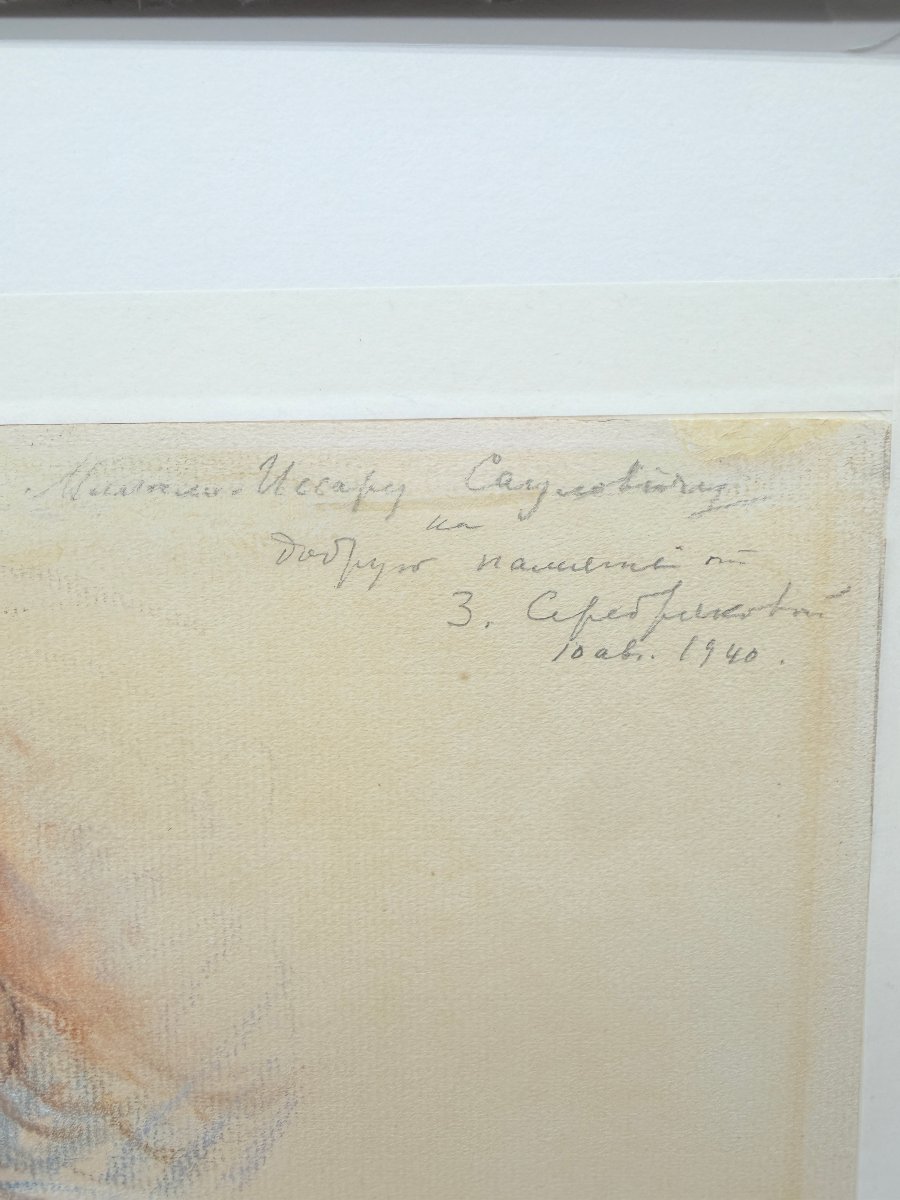 Иссару Сауловичу
на
добрую память от
З. Серебряковой
10 авг. 1940.